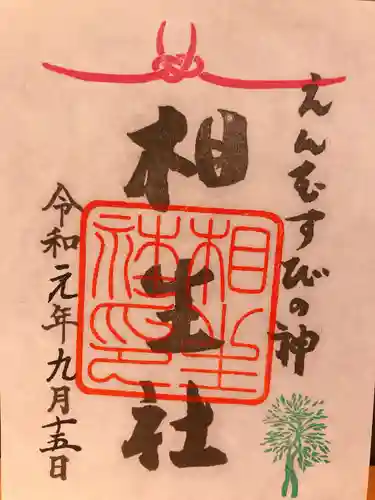 えんむすびの神
相生社
相生社印
令和元年九月十五日